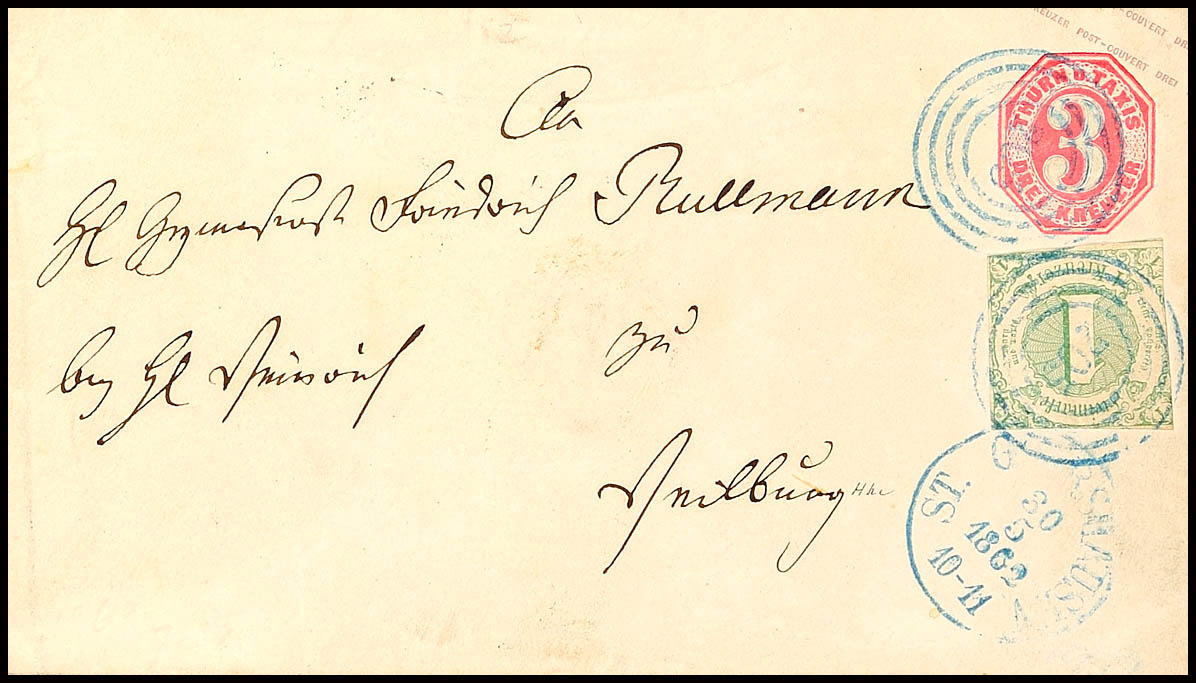 KREUZER POST-COUVERT DREI
POST-COUVERT DREI
THURN U. TAXIS
3
DREI KREUZER
An
Hl Gymnasiast Friedrich Rullmann
bey Hl Weinrich
zu
Weilburg
1 Kreuzer
Freimarke
ST. GOARSHAUSEN
30
5
1862
10-11